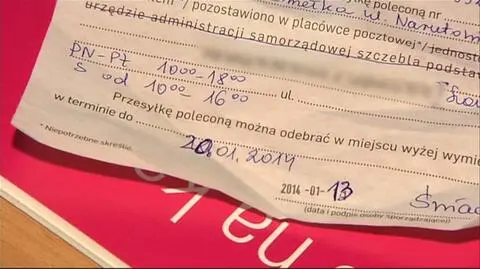 em" /pozostawiono w placówce pocztowej* /jednostce
urzędzie administracji samorządowej szczebla podstaw
PN-PT 10⁰⁰-18⁰⁰
S od 10⁰⁰-16⁰⁰ ul.
Przesyłkę poleconą można odebrać w miejscu wyżej wymie
w terminie do 20.01.2014
* Niepotrzebne skreślić.
2014 -01- 13
(data i podpis osoby sporządzającej)
na k